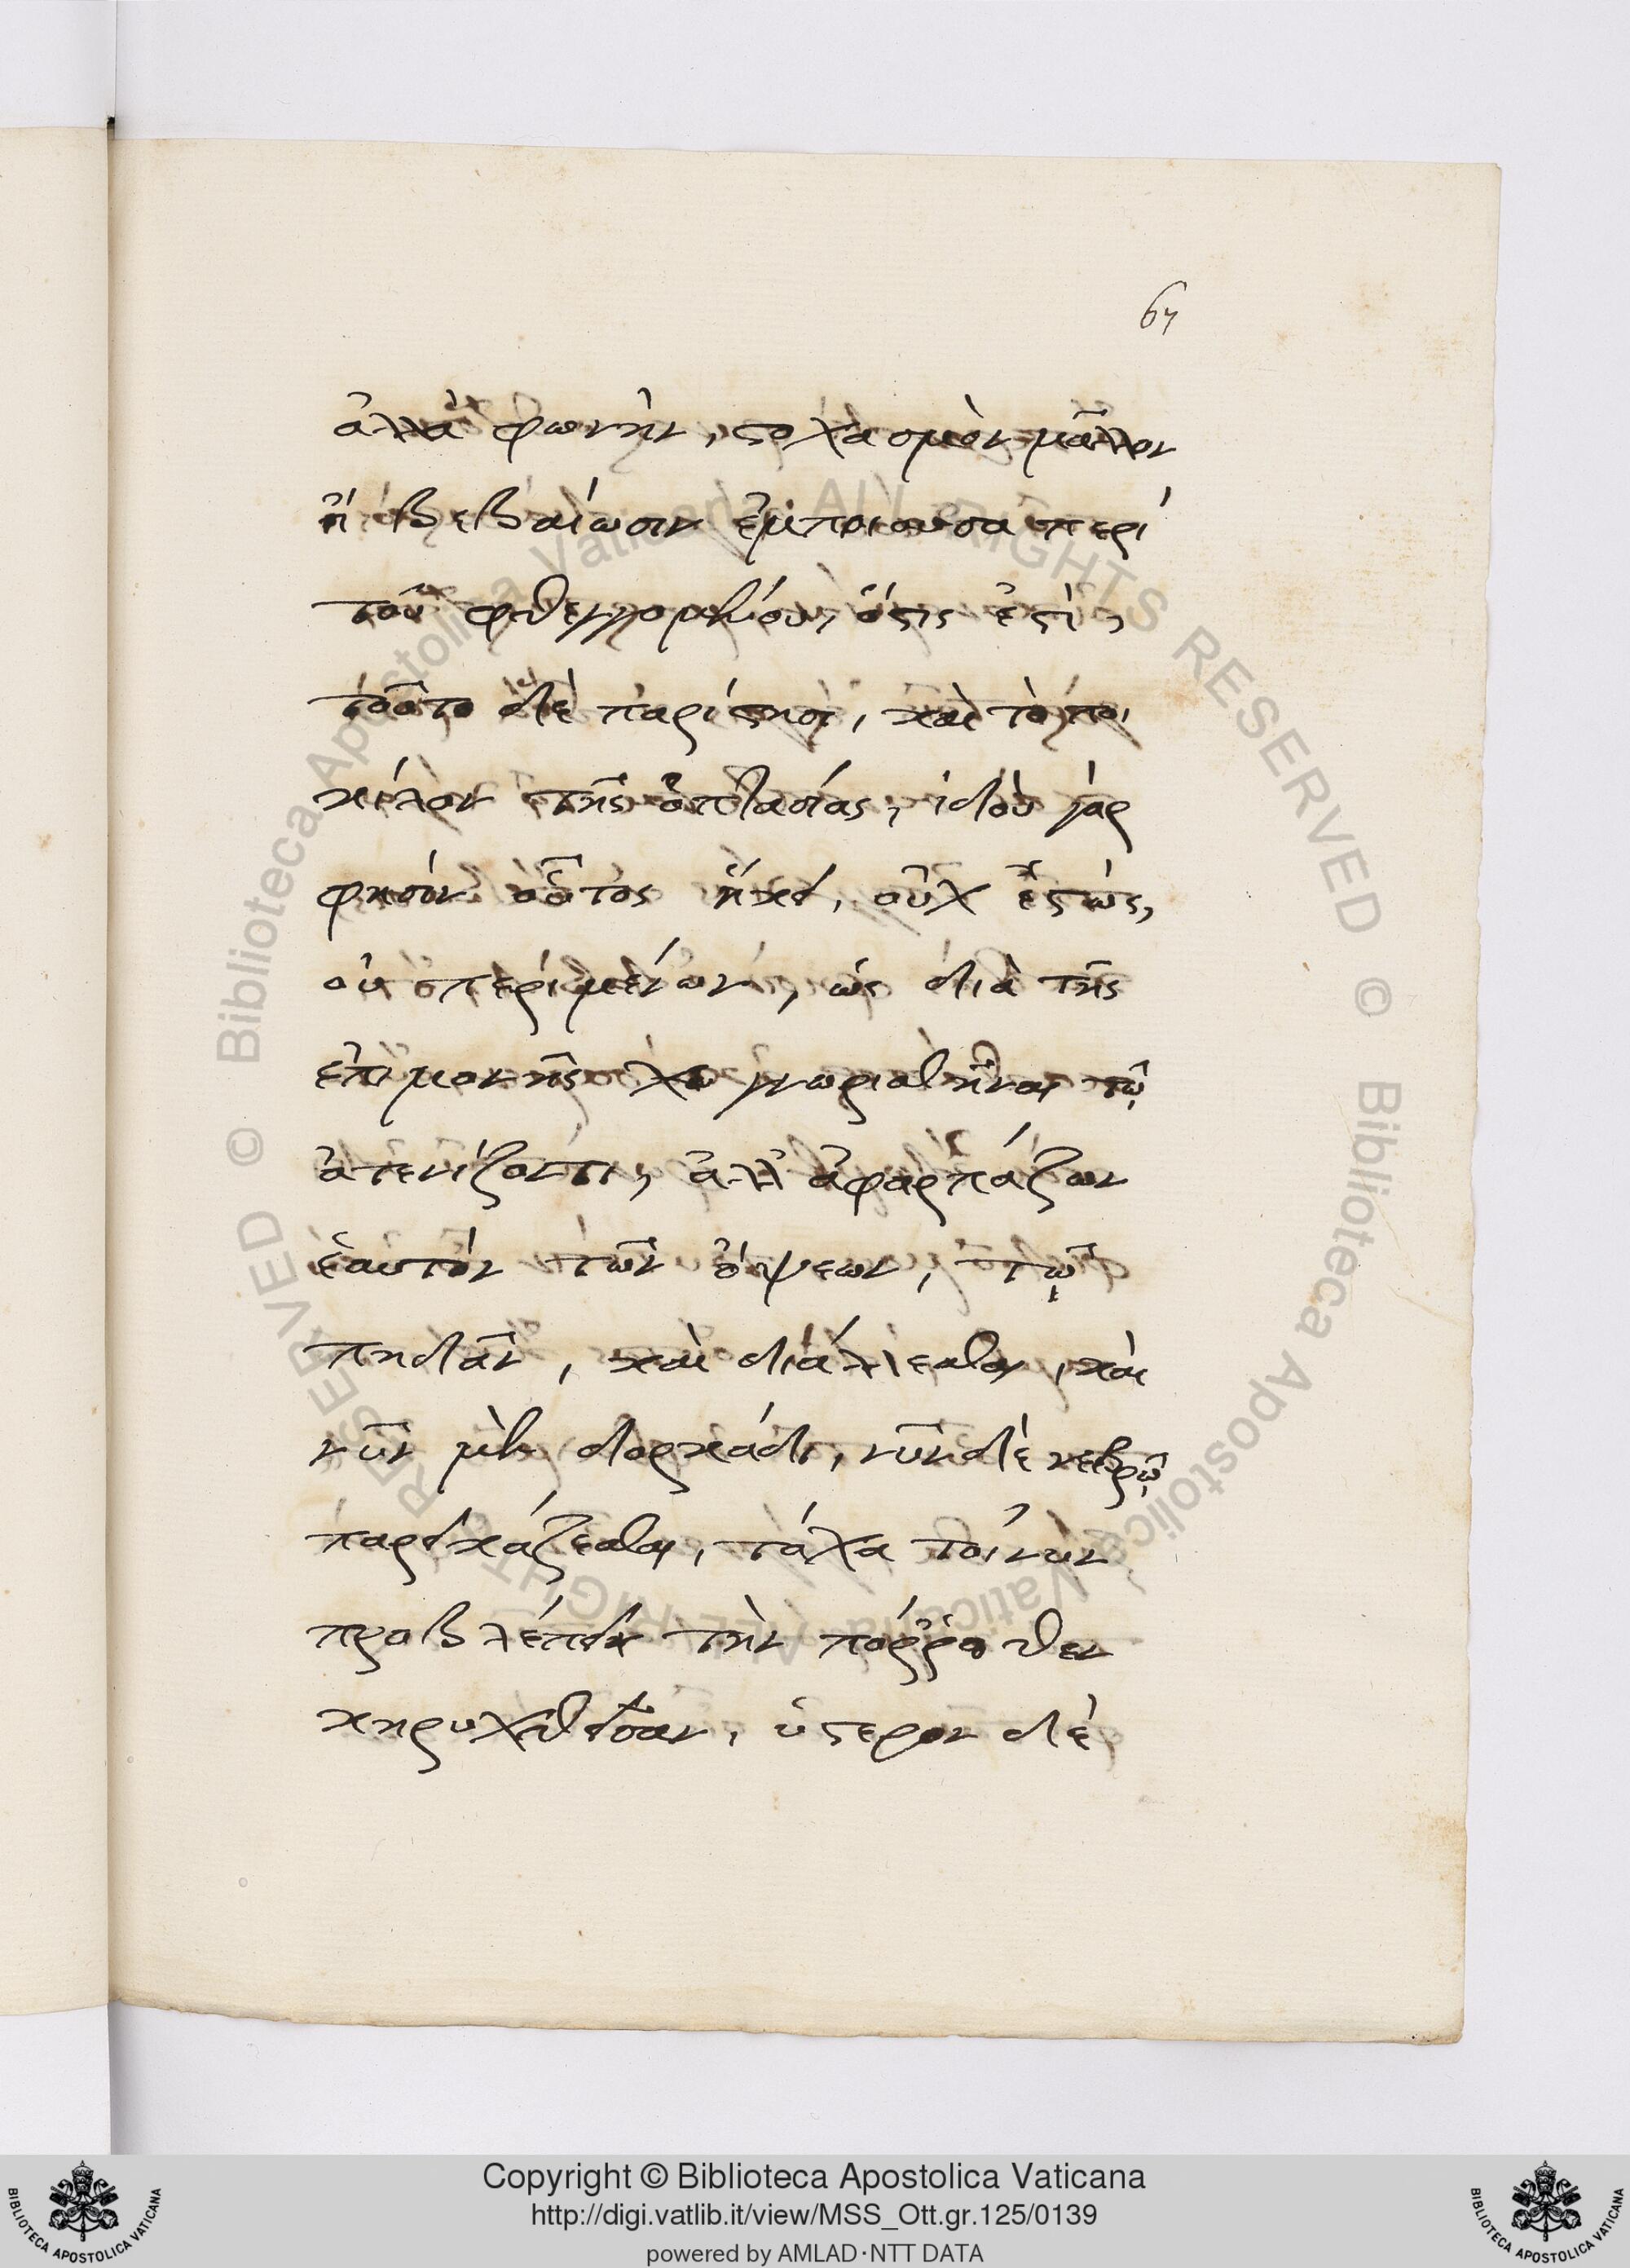 67
ἀλλὰ φωνὴν, στοχασμὸν μᾶλλον
ἢ βεβαίωσιν ἐμποιοῦσα περὶ
τοῦ φθεγγομένου, ὅστις ἐστὶ,
τοῦτο δὲ παρίστησι, καὶ τὸ ποι
κίλον τῆς ὀπτασίας, ἰδοὺ γάρ
φησιν οὗτος ἥκει, οὐχ ἑστὼς,
οὐ περιμένων, ὡς διὰ τῆς
ἐπιμονῆς γνωρισθῆναι τῷ
ἀτενίζοντι, ἀλλ' ἀφαρπάζων
ἑαυτὸν τῶν ὄψεων, τῷ
πηδᾶν, καὶ διάλλεσθαι, καὶ
νῦν μὲν δορκάδι, νῦν δὲ νεβρῷ
παρεικάζεσθαι, τάχα τοίνυν
προβλέπει τὴν πόῤῥωθεν
κηρυχθεῖσαν, ὕστερον δὲ
Copyright © Biblioteca Apostolica Vaticana
http://digi.vatlib.it/view/MSS_Ott.gr.125/0139
powered by AMLAD·NTT DATA
BIBLIOTECA APOSTOLICA VATICANA
BIBLIOTECA APOSTOLICA VATICANA
© Biblioteca Apostolica Vaticana ALL RIGHTS RESERVED © Biblioteca Apostolica Vaticana ALL RIGHTS RESERVED